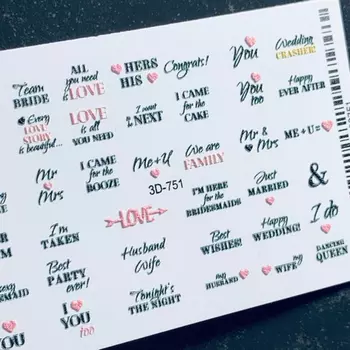 Team
BRIDE
ALL
you need
is LOVE
HERS
HIS
Congrats!
You
Wedding
CRASHER!
Every
LOVE
STORY
is beautiful...
LOVE
is all
YOU NEED
I want
to be
NEXT
I CAME
for the
CAKE
You
too
Happy
EVER AFTER
Mr
&
Mrs
I CAME
for the
BOOZE
Me + U
We are
FAMILY
Mr &
Mrs
ME + U =
3D-751
I'm
TAKEN
LOVE
I'M HERE
for the
BRIDESMAIDS
Just
MARRIED
&
Best
PARTY
ever!
Husband
Wife
Best
WISHES!
Happy
WEDDING!
I do
I
YOU
too
Tonight's
THE NIGHT
my
HUSBAND
my
WIFE
DANCING
QUEEN